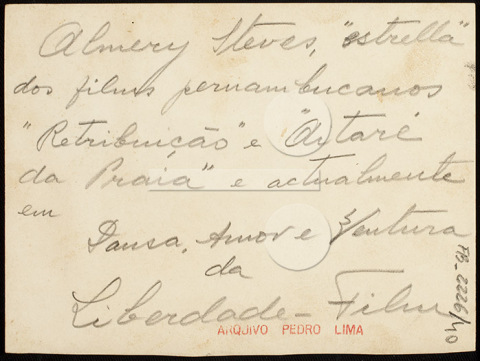 Almery Steves, "estrella"
dos films pernambucanos
"Retribuição" e "Aytaré
da Praia" e actualmente
em
Dansa, Amor e Ventura
da
Liberdade - Film
ARQUIVO PEDRO LIMA
FB_2226/40